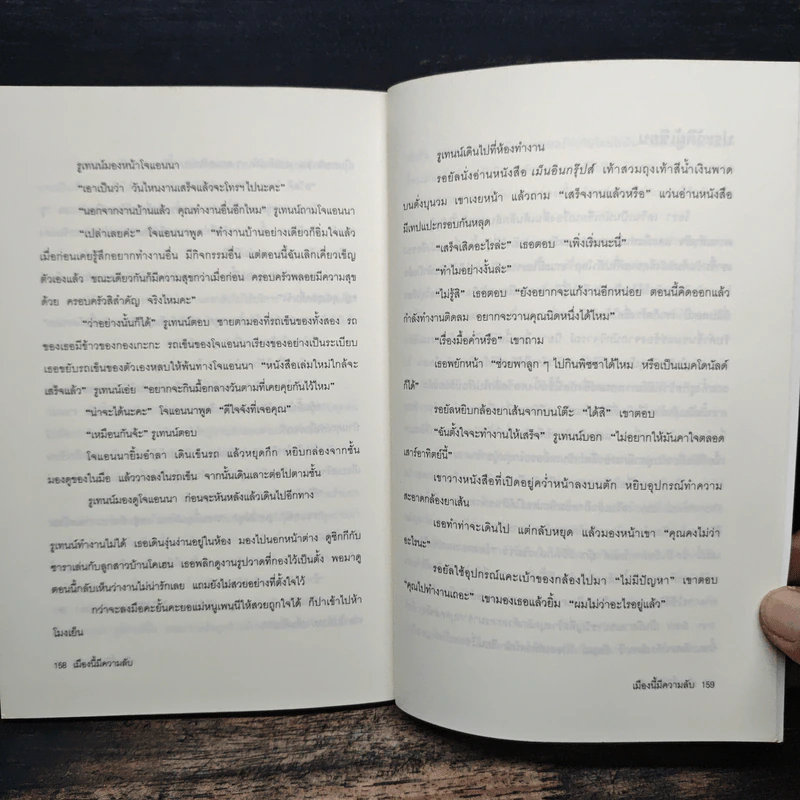 รูเทนน์มองหน้าโจแอนนา
"เอาเป็นว่า วันไหนงานเสร็จแล้วจะโทรฯไปนะคะ"
"นอกจากงานบ้านแล้ว คุณทำงานอื่นอีกไหม" รูเทนน์ถามโจแอนนา
"เปล่าเลยค่ะ" โจแอนนาพูด "ทำงานบ้านอย่างเดียวก็อิ่มใจแล้ว
เมื่อก่อนเคยรู้สึกอยากทำงานอื่น มีกิจกรรมอื่น แต่ตอนนี้ฉันเลิกเคี่ยวเข็ญ
ตัวเองแล้ว ขณะเดียวกันก็มีความสุขกว่าเมื่อก่อน ครอบครัวพลอยมีความสุข
ด้วย ครอบครัวสิสำคัญ จริงไหมคะ"
"ว่าอย่างนั้นก็ได้" รูเทนน์ตอบ ชายตามองที่รถเข็นของทั้งสอง รถ
ของเธอมีข้าวของกองเกะกะ รถเข็นของโจแอนนาเรียงของอย่างเป็นระเบียบ
เธอขยับรถเข็นของตัวเองหลบให้พ้นทางโจแอนนา "หนังสือเล่มใหม่ใกล้จะ
เสร็จแล้ว" รูเทนน์เอ่ย "อยากจะกินมื้อกลางวันตามที่เคยคุยกันไว้ไหม"
"น่าจะได้นะคะ" โจแอนนาพูด "ดีใจจังที่เจอคุณ"
"เหมือนกันจ้ะ" รูเทนน์ตอบ
โจแอนนายิ้มอำลา เดินเข็นรถ แล้วหยุดกึก หยิบกล่องจากชั้น
มองดูของในมือ แล้ววางลงในรถเข็น จากนั้นเดินเลาะต่อไปตามชั้น
รูเทนน์มองดูโจแอนนา ก่อนจะหันหลังแล้วเดินไปอีกทาง
รูเทนน์ทำงานไม่ได้ เธอเดินงุ่นง่านอยู่ในห้อง มองไปนอกหน้าต่าง ดูชิกกี้กับ
ซาราเล่นกับลูกสาวบ้านโคเฮน เธอพลิกดูงานรูปวาดที่กองไว้เป็นตั้ง พอมาดู
ตอนนี้กลับเห็นว่างานไม่น่ารักเลย แถมยังไม่สวยอย่างที่ตั้งใจไว้
กว่าจะลงมือคะยั้นคะยอแม่หนูเพนนีให้สวยถูกใจได้ ก็ปาเข้าไปห้า
โมงเย็น
158 เมืองนี้มีความลับ
รูเทนน์เดินไปที่ห้องทำงาน
รอยัลนั่งอ่านหนังสือ เม็นอินกรุ๊ปส์ เท้าสวมถุงเท้าสีน้ำเงินพาด
บนตั่งบุนวม เขาเงยหน้า แล้วถาม "เสร็จงานแล้วหรือ" แว่นอ่านหนังสือ
มีเทปแปะกรอบกันหลุด
"เสร็จเสิดอะไรล่ะ" เธอตอบ "เพิ่งเริ่มนะนี่"
"ทำไมอย่างงั้นล่ะ"
"ไม่รู้สิ" เธอตอบ "ยังอยากจะแก้งานอีกหน่อย ตอนนี้คิดออกแล้ว
กำลังทำงานติดลม อยากจะวานคุณนิดหนึ่งได้ไหม"
"เรื่องมื้อค่ำหรือ" เขาถาม
เธอพยักหน้า "ช่วยพาลูก ๆ ไปกินพิซซาได้ไหม หรือเป็นแมคโดนัลด์
ก็ได้"
รอยัลหยิบกล้องยาเส้นจากบนโต๊ะ "ได้สิ" เขาตอบ
"ฉันตั้งใจจะทำงานให้เสร็จ" รูเทนน์บอก "ไม่อยากให้มันคาใจตลอด
เสาร์อาทิตย์นี้"
เขาวางหนังสือที่เปิดอยู่คว่ำหน้าลงบนตัก หยิบอุปกรณ์ทำความ
สะอาดกล้องยาเส้น
เธอทำท่าจะเดินไป แต่กลับหยุด แล้วมองหน้าเขา "คุณคงไม่ว่า
อะไรนะ"
รอยัลใช้อุปกรณ์แคะเบ้าของกล้องไปมา "ไม่มีปัญหา" เขาตอบ
"คุณไปทำงานเถอะ" เขามองเธอแล้วยิ้ม "ผมไม่ว่าอะไรอยู่แล้ว"
เมืองนี้มีความลับ 159